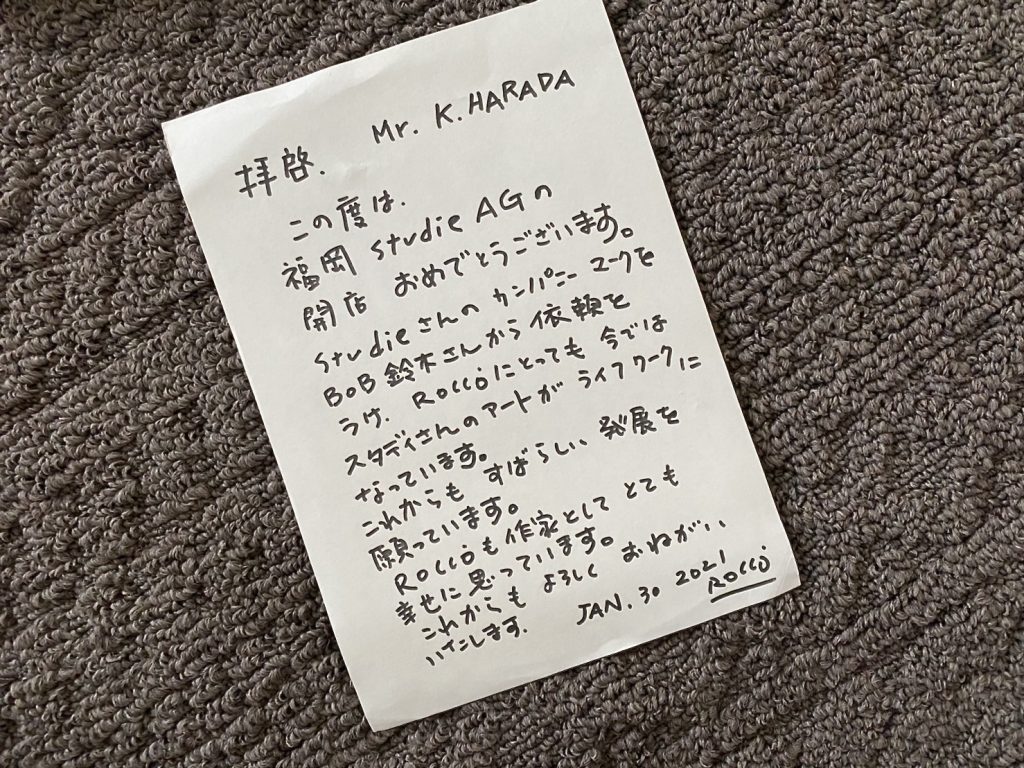 Mr. K. HARADA
拝啓.
この度は.
福岡 studie AGの
開店 おめでとうございます。
studieさんの カンパニーマークを
BoB鈴木さんから依頼を
うけ. Roccoにとっても 今では
スタディさんのアートが ライフワークに
なっています。
これからも すばらしい 発展を
願っています。
Roccoも作家として とても
幸せに思っています。
これからも よろしく おねがい
いたします.
JAN. 30 2021
ROCCO